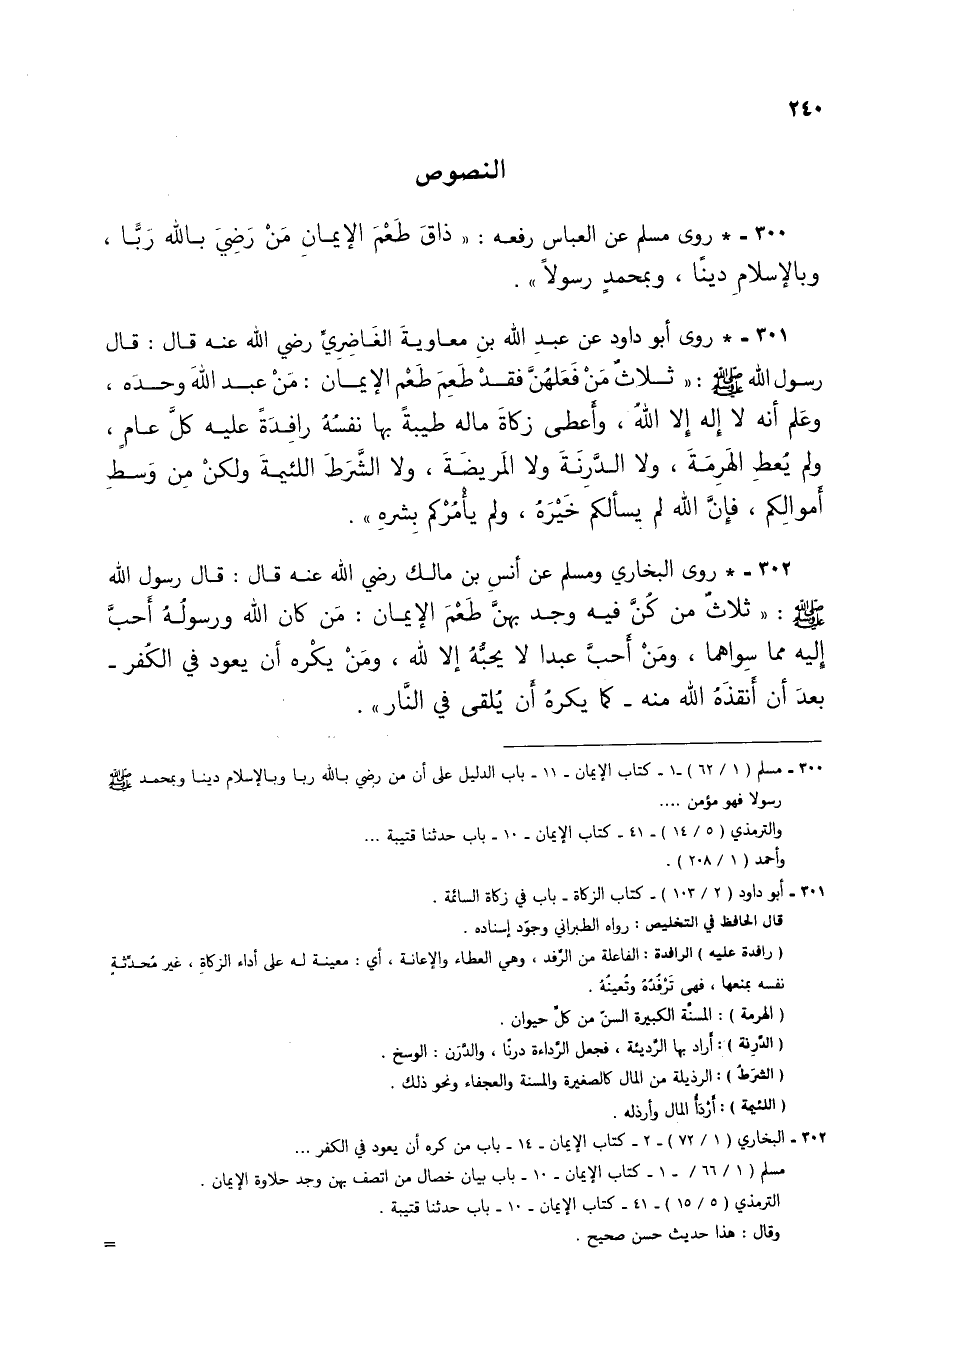 ٢٤٠
النصوص
٣٠٠ ـ * روى مسلم عن العباس رفعه : « ذاقَ طَعْمَ الإيمانِ مَنْ رَضِيَ بالله رَبًّا ،
وبالإسلامِ دينًا ، وبمحمدٍ رسولاً » .
٣٠١ ـ * روى أبو داود عن عبدِ الله بنِ معاويةَ الغَاضِريِّ رضي الله عنه قال : قال
رسول الله ﷺ : « ثلاثٌ مَنْ فَعَلهُنَّ فقدْ طَعِمَ طَعْم الإيمان : مَنْ عبد اللهَ وحدَه ،
وعَلم أنه لا إله إلا اللهُ ، وأعطى زكاةَ ماله طيبةً بها نفسُهُ رافِدَةً عليه كلَّ عامٍ ،
ولم يُعطِ الهَرِمَةَ ، ولا الدَّرِنَةَ ولا المَريضَةَ ، ولا الشَّرَطَ اللئيمةَ ولكنْ من وَسطِ
أموالِكم ، فإنَّ الله لم يسألكم خَيْرَهُ ، ولم يأْمُرْكم بِشرهِ » .
٣٠٢ ـ * روى البخاري ومسلم عن أنسِ بن مالك رضي الله عنه قال : قال رسول الله
ﷺ : « ثلاثٌ من كُنَّ فيه وجد بهنَّ طَعْمَ الإيمان : مَن كان الله ورسولُهُ أحبَّ
إليه مما سِواهما ، ومَنْ أحبَّ عبدا لا يحبُّهُ إلا لله ، ومَنْ يكْره أن يعود في الكُفر ـ
بعدَ أن أَنقذَهُ الله منه ـ كما يكرهُ أن يُلقى في النَّار » .
٣٠٠ ـ مسلم ( ١ / ٦٢ ) ـ ١ ـ كتاب الإيمان ـ ١١ ـ باب الدليل على أن من رضي بالله ربا وبالإسلام دينا وبمحمد ﷺ
رسولا فهو مؤمن ....
والترمذي ( ٥ / ١٤ ) ـ ٤١ ـ كتاب الإيمان ـ ١٠ ـ باب حدثنا قتيبة ...
وأحمد ( ١ / ٢٠٨ ) .
٣٠١ ـ أبو داود ( ٢ / ١٠٣ ) ـ كتاب الزكاة ـ باب في زكاة السائمة .
قال الحافظ في التلخيص : رواه الطبراني وجوّد إسناده .
( رافدة عليه ) الرافدة : الفاعلة من الرِّفد ، وهي العطاء والإعانة ، أي : معينة له على أداء الزكاة ، غير مُحدِّثةٍ
نفسه بمنعها ، فهى تَرْفُدُهُ وتُعينُهُ .
( الهرمة ) : المسنَّة الكبيرة السنّ من كلِّ حيوان .
( الدَّرِنة ) : أراد بها الرَّديئة ، فجعل الرَّداءة درنًا ، والدَّرَن : الوسخ .
( الشرَطُ ) : الرذيلة من المال كالصغيرة والمسنة والعجفاء ونحو ذلك .
( اللئيمة ) : أرْدَأُ المال وأرذله .
٣٠٢ ـ البخاري ( ١ / ٧٢ ) ـ ٢ ـ كتاب الإيمان ـ ١٤ ـ باب من كره أن يعود في الكفر ...
مسلم ( ١ / ٦٦ / ـ ١ ـ كتاب الإيمان ـ ١٠ ـ باب بيان خصال من اتصف بهن وجد حلاوة الإيمان .
الترمذي ( ٥ / ١٥ ) ـ ٤١ ـ كتاب الإيمان ـ ١٠ ـ باب حدثنا قتيبة .
وقال : هذا حديث حسن صحيح .
=